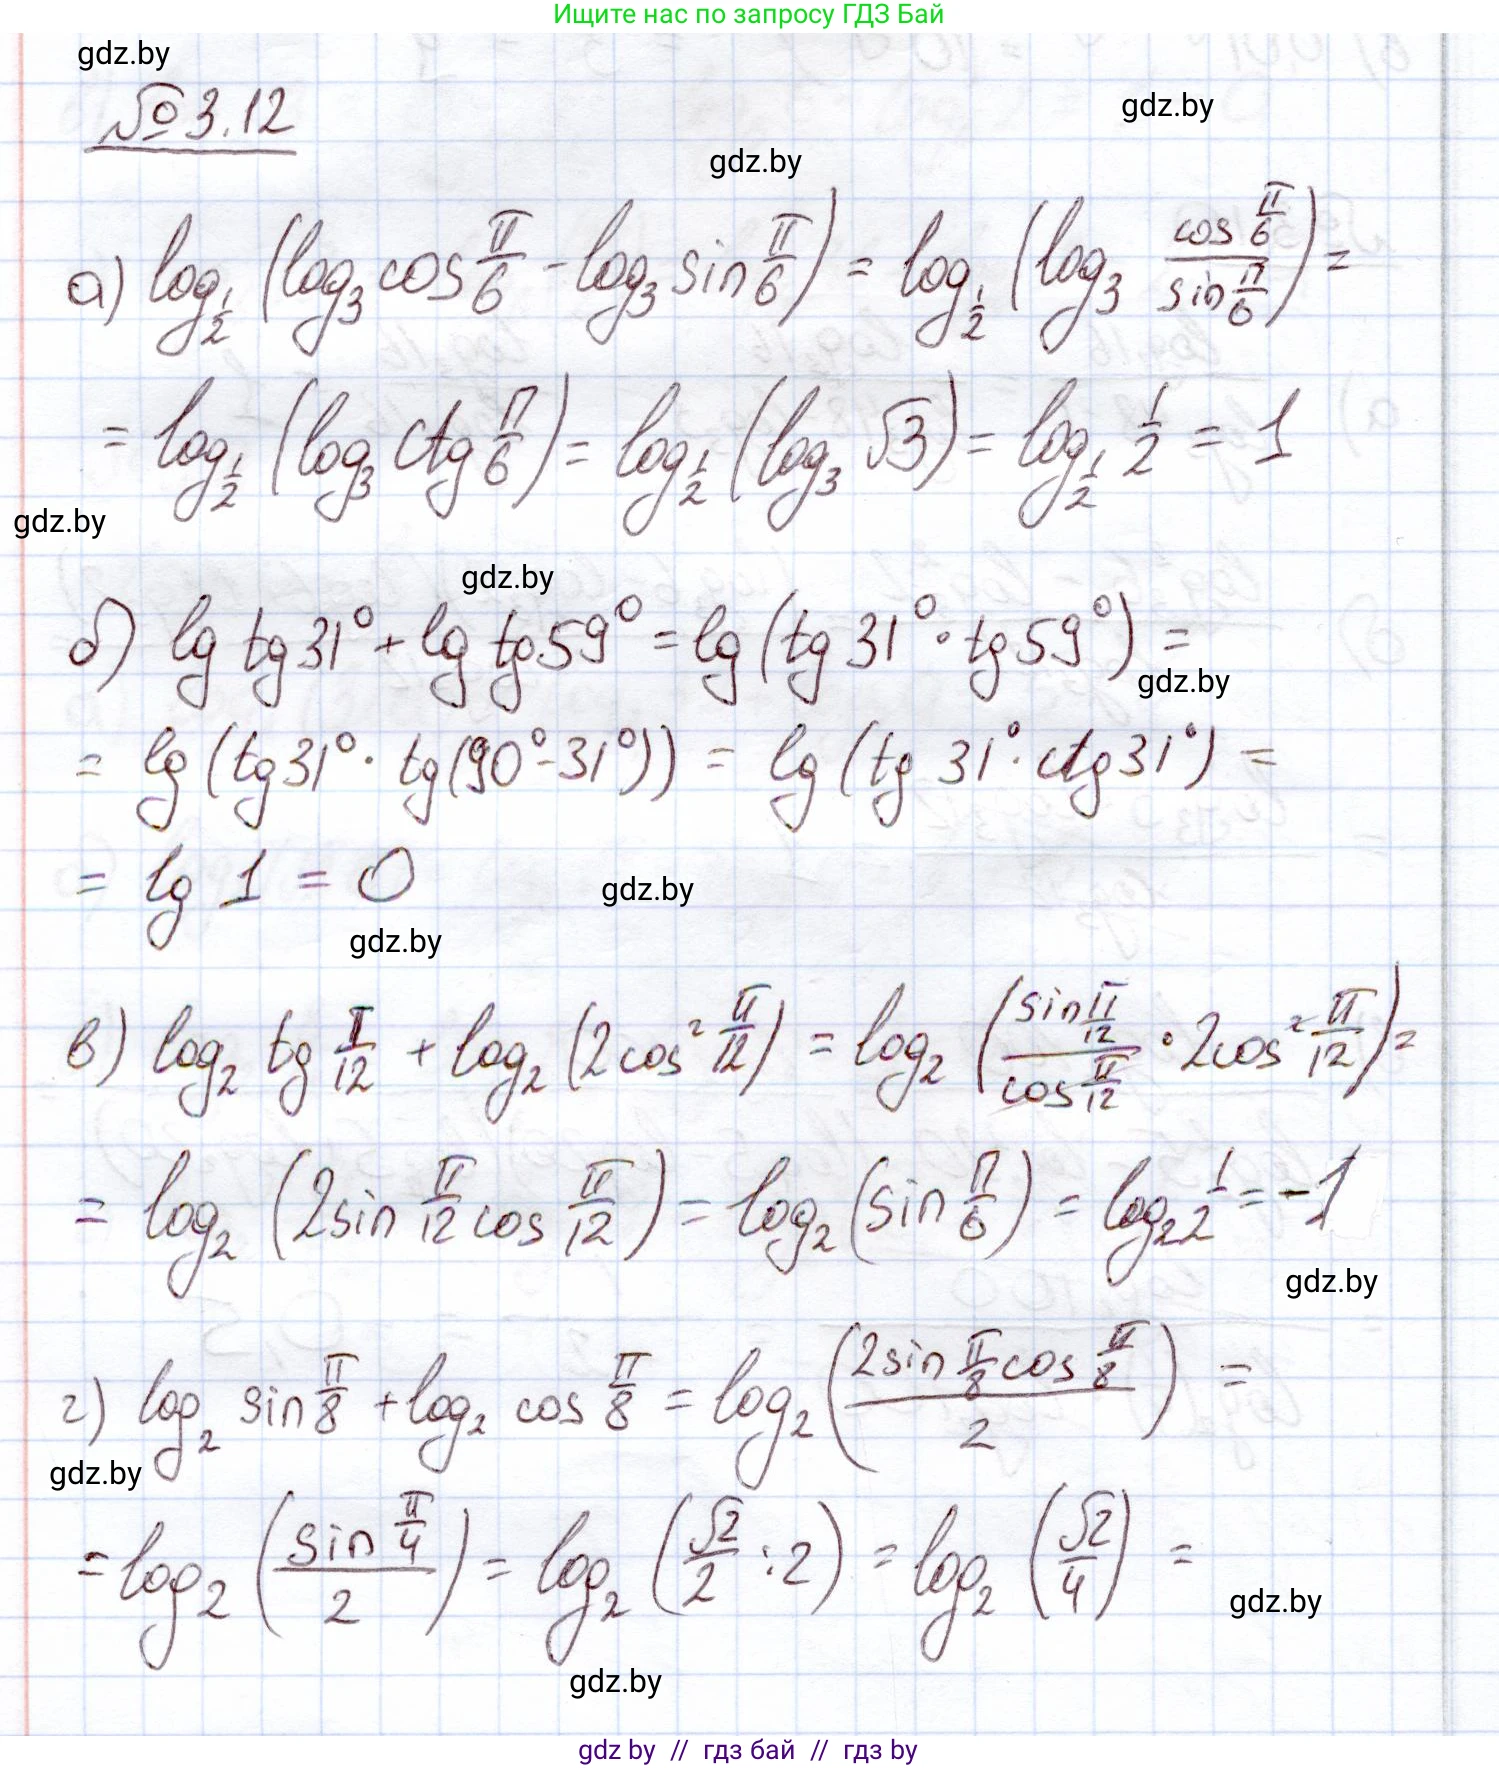 Ищите нас по запросу ГДЗ Бай
gdz.by
№ 3.12
gdz.by
gdz.by
а) log_{1/2} (log_3 cos π/6 - log_3 sin π/6) = log_{1/2} (log_3 (cos π/6)/(sin π/6)) =
= log_{1/2} (log_3 ctg π/6) = log_{1/2} (log_3 √3) = log_{1/2} 1/2 = 1
gdz.by
gdz.by
б) lg tg 31° + lg tg 59° = lg (tg 31° · tg 59°) =
gdz.by
= lg (tg 31° · tg (90° - 31°)) = lg (tg 31° · ctg 31°) =
= lg 1 = 0
gdz.by
gdz.by
в) log_2 tg π/12 + log_2 (2cos² π/12) = log_2 ((sin π/12)/(cos π/12) · 2cos² π/12) =
= log_2 (2sin π/12 cos π/12) = log_2 (sin π/6) = log_2 1/2 = -1
gdz.by
г) log_2 sin π/8 + log_2 cos π/8 = log_2 ((2sin π/8 cos π/8)/2) =
gdz.by
= log_2 ((sin π/4)/2) = log_2 (√2/2 : 2) = log_2 (√2/4) =
gdz.by
gdz.by
gdz by // гдз бай // гдз by